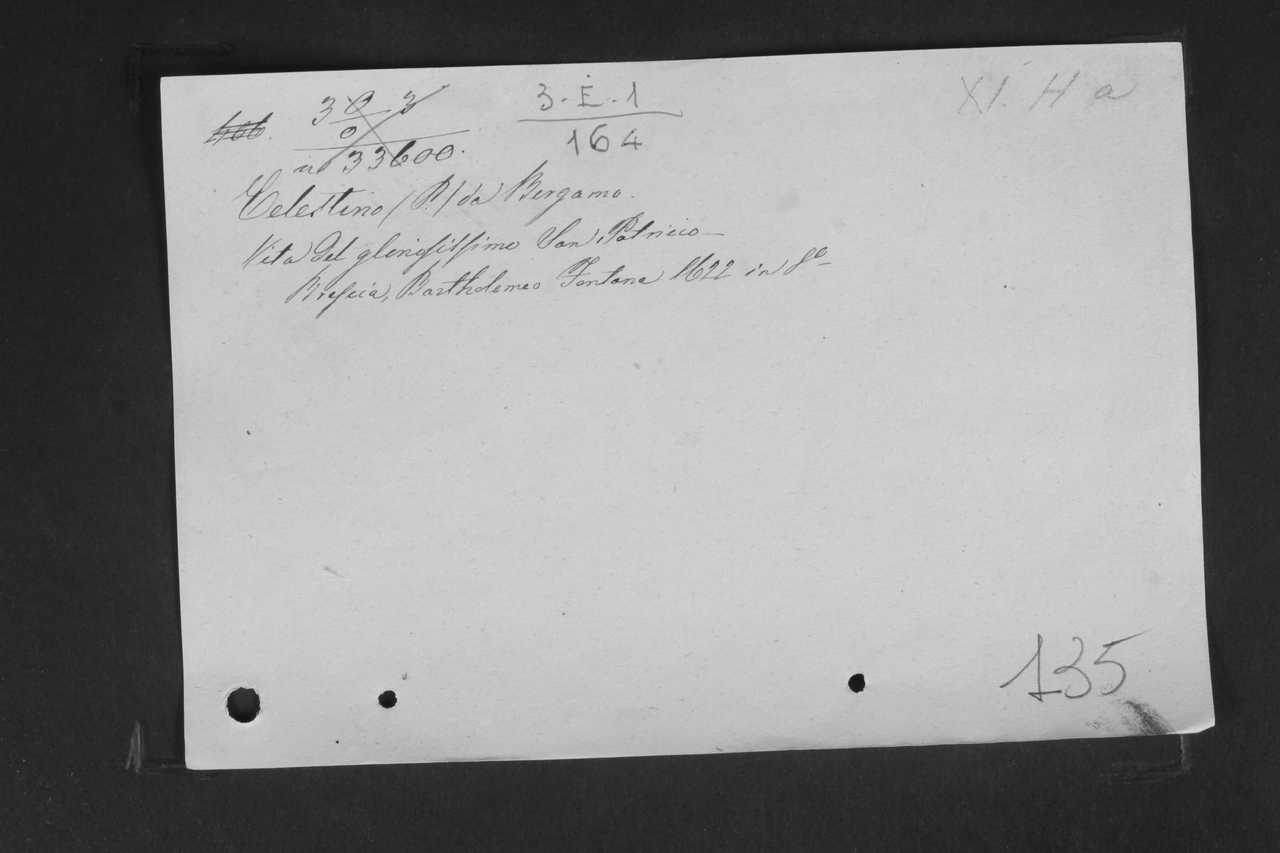 3.E.1
164
XI. H a
33600.
Celestino (P.) da Bergamo.
Vita del gloriosissimo San Patricio—
Brescia, Bartholomeo Fontana 1622 in 8º—
135